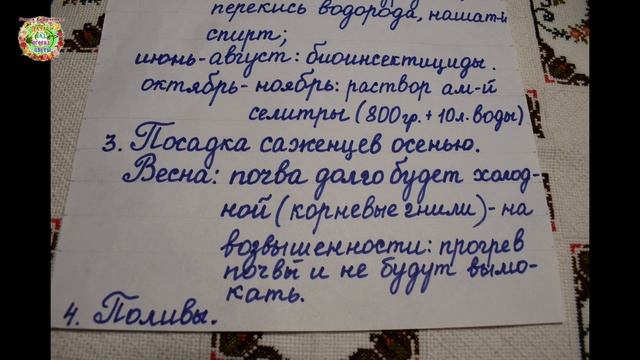 перекись водорода, нашат-й
спирт;
июнь-август: биоинсектициды.
октябрь-ноябрь: раствор ам-й
селитры (800гр. + 10л. воды)
3. Посадка саженцев осенью.
Весна: почва долго будет холод-
ной (корневые гнили) - на
возвышенности: прогрев
почвы и не будут вымо-
кать.
4. Поливы.